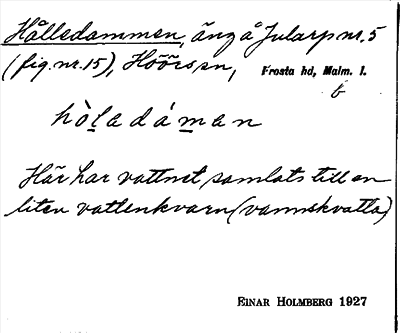 Hålledammen, äng å Jularp nr. 5
(fig. nr. 15), Höörs sn, Frosta hd, Malm. l.
b
hòladáman
Här har vattnet samlats till en
liten vattenkvarn (vannskvatta)
EINAR HOLMBERG 1927